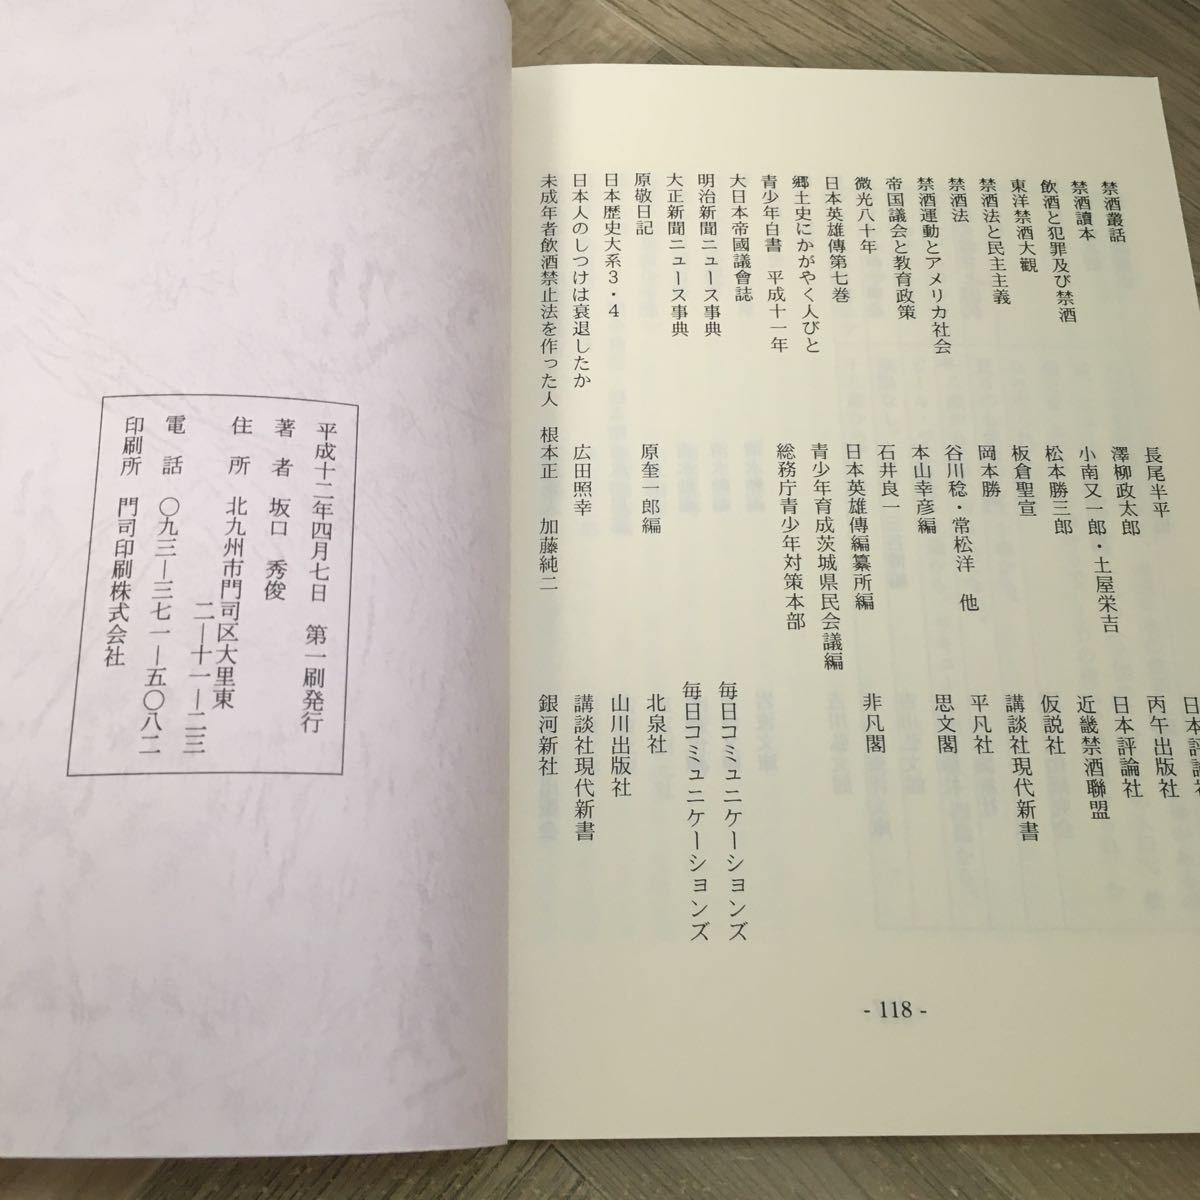 禁酒叢話 長尾半平 日本評論社
禁酒讀本 澤柳政太郎 丙午出版社
飲酒と犯罪及び禁酒 小南又一郎・土屋栄吉 日本評論社
東洋禁酒大観 松本勝三郎 近畿禁酒聯盟
禁酒法と民主主義 板倉聖宣 仮説社
禁酒法 岡本勝 講談社現代新書
禁酒運動とアメリカ社会 谷川稔・常松洋 他 平凡社
帝国議会と教育政策 本山幸彦編 思文閣
微光八十年 石井良一
日本英雄傳第七巻 日本英雄傳編纂所編 非凡閣
郷土史にかがやく人びと 青少年育成茨城県民会議編
青少年白書 平成十一年 総務庁青少年対策本部
大日本帝國議會誌
明治新聞ニュース事典 毎日コミュニケーションズ
大正新聞ニュース事典 毎日コミュニケーションズ
原敬日記 原奎一郎編 北泉社
日本歴史大系3・4 山川出版社
日本人のしつけは衰退したか 広田照幸 講談社現代新書
未成年者飲酒禁止法を作った人 根本正 加藤純二 銀河新社
- 118 -
平成十二年四月七日 第一刷発行
著者 坂口 秀俊
住所 北九州市門司区大里東
二―十一―二三
電話 〇九三―三七一―五〇八二
印刷所 門司印刷株式会社